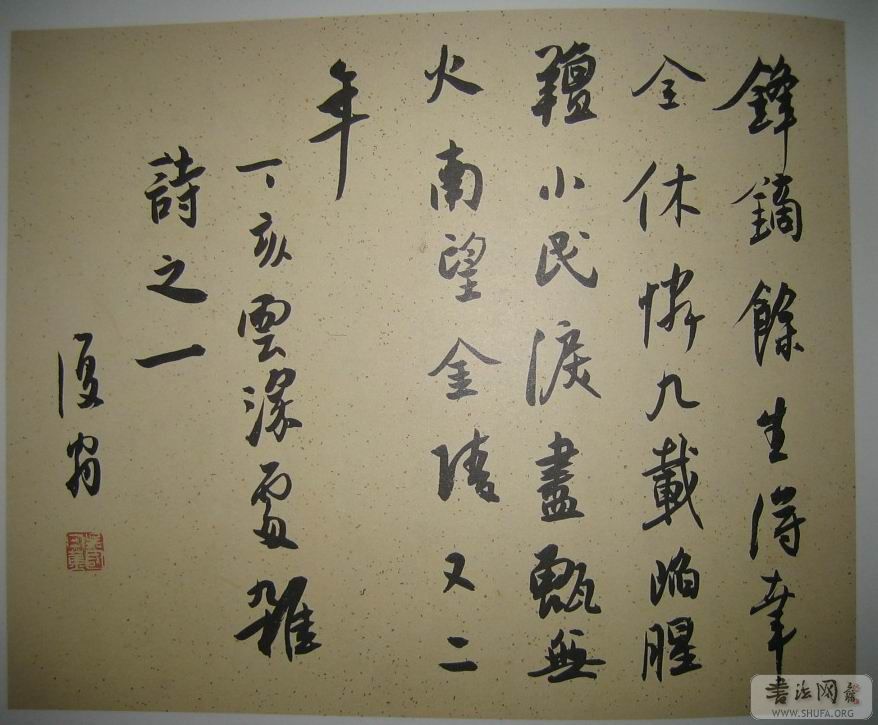 鋒鏑餘生得幸
全休憐九載陷腥
羶小民淚盡甑無
火南望金陵又二
年
丁亥雲深處雜
詩之一
復
書法网
WWW.SHUFA.ORG